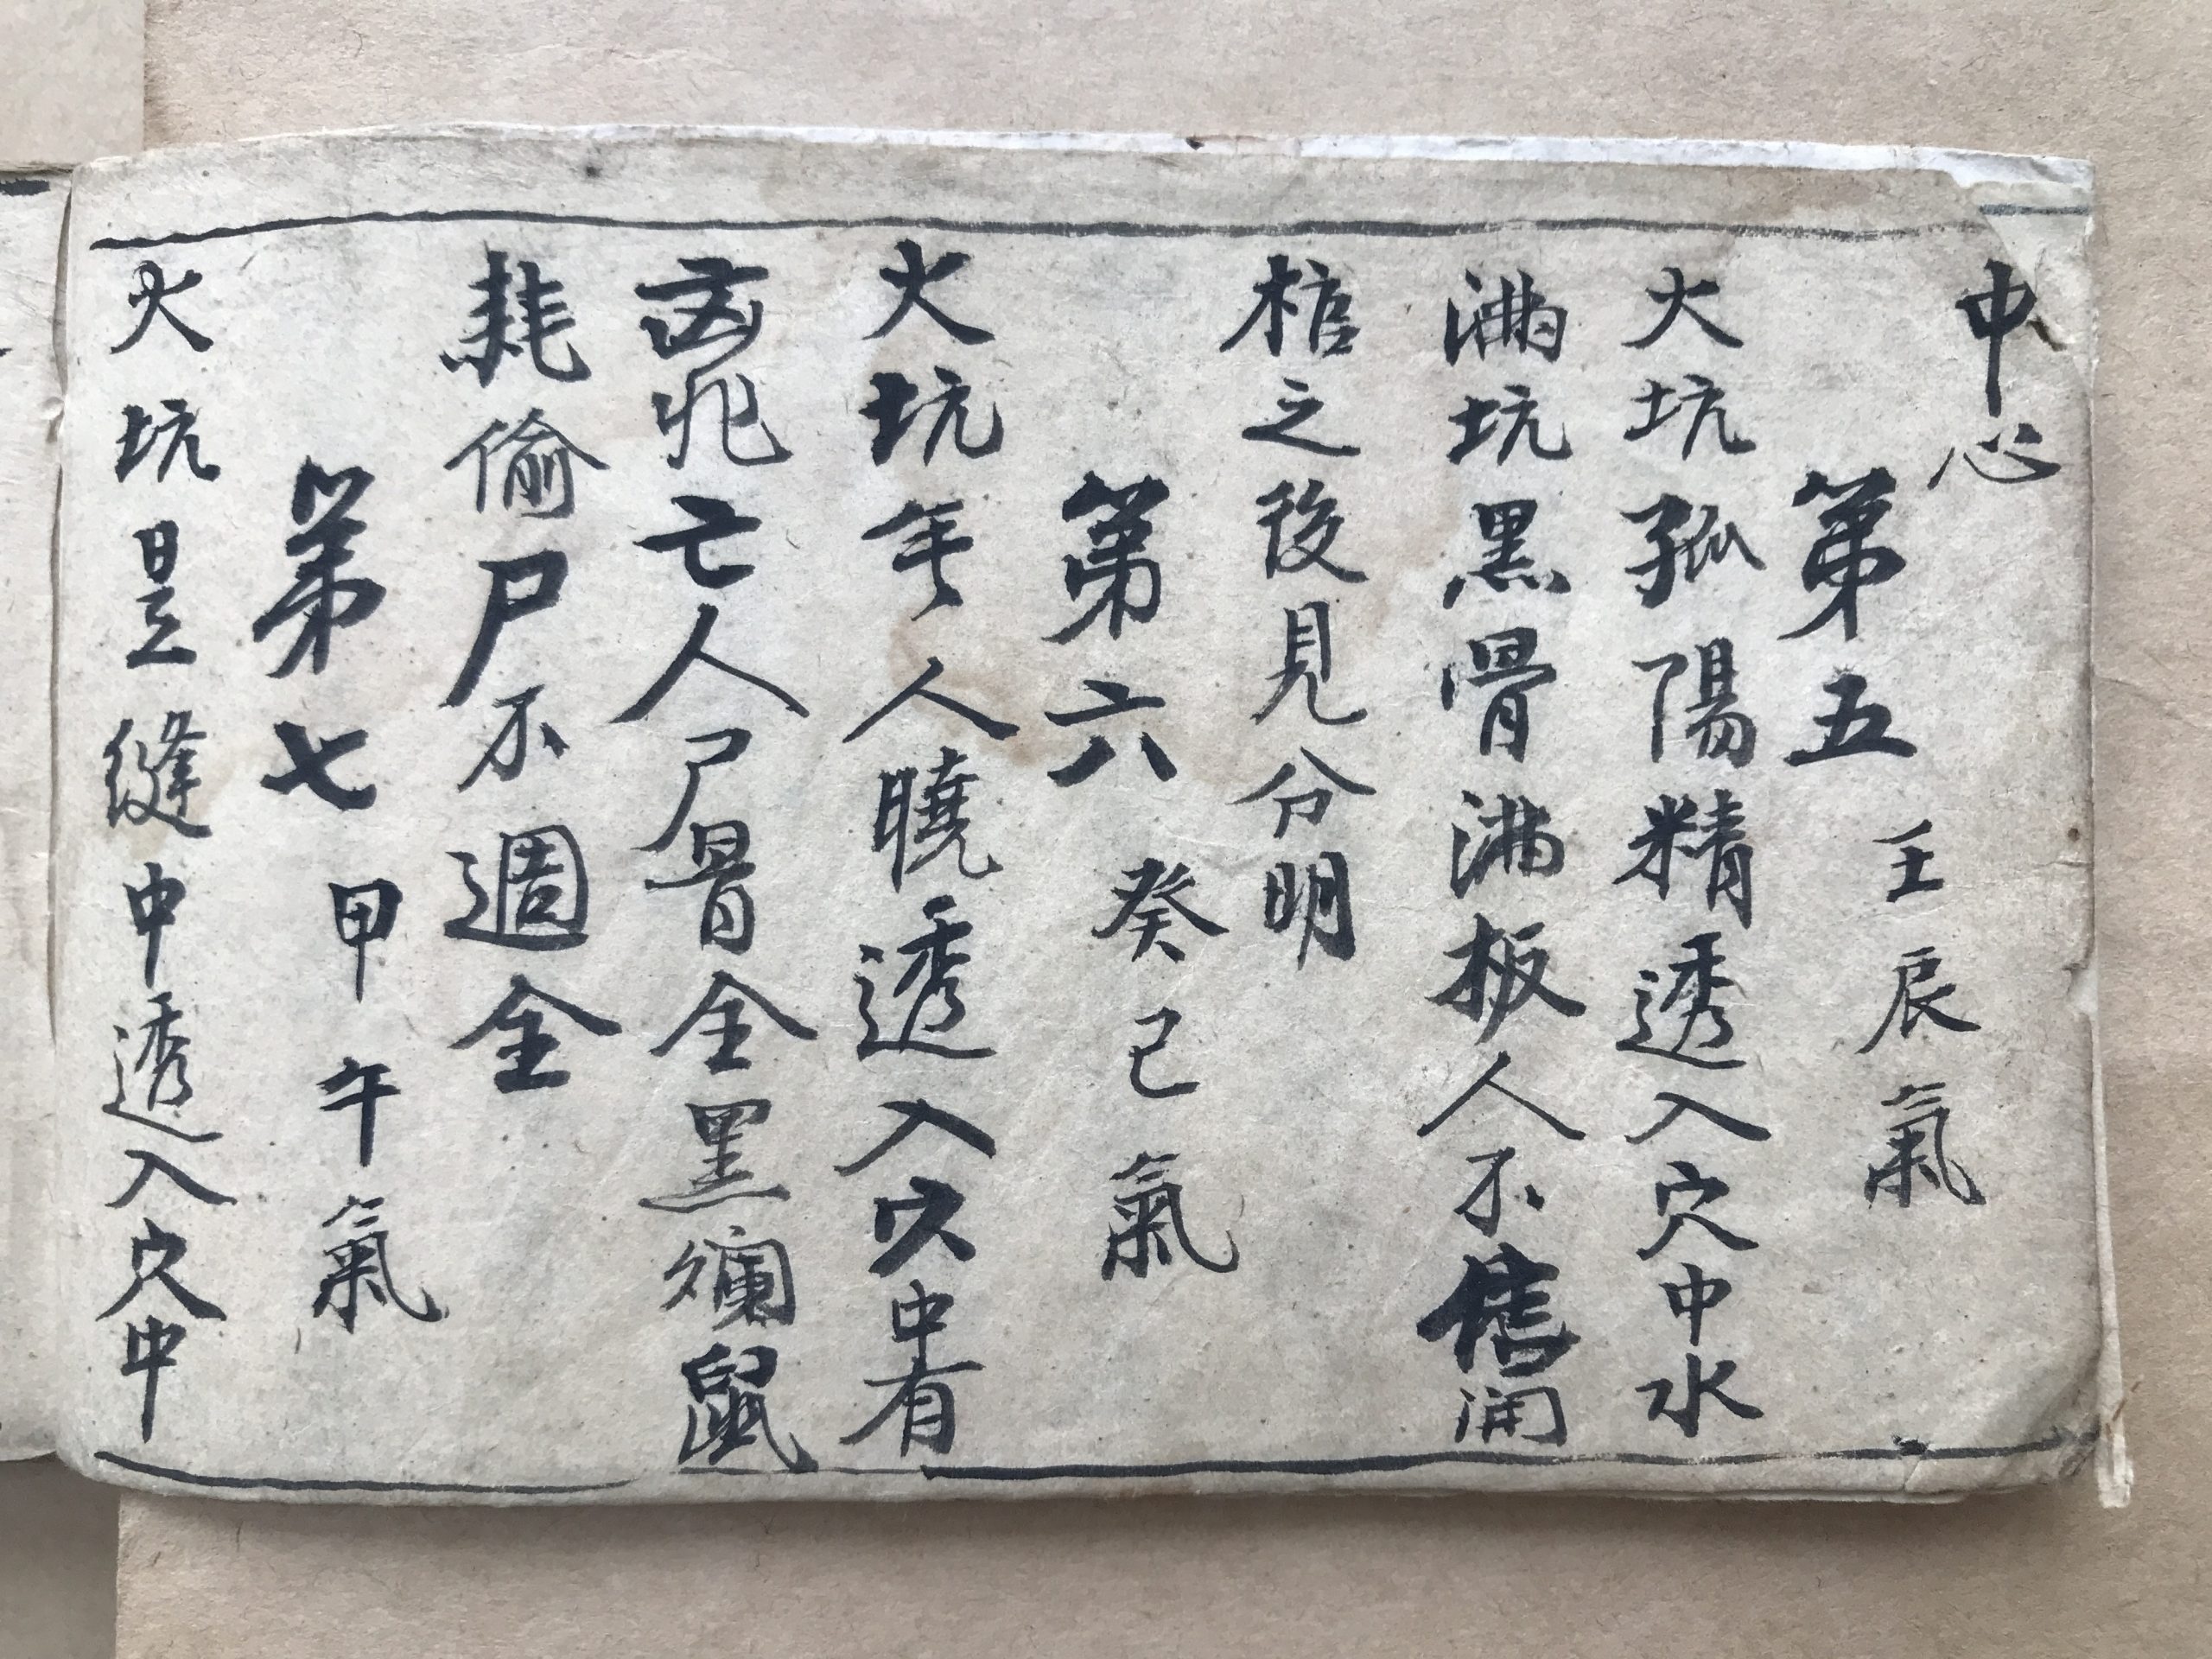 中心
第五 壬辰氣
火坑孤陽精透入穴中水
満坑黑骨满板人不信開
棺之後見分明
第六 癸己氣
火坑年人曉透入穴中有
凶兆亡人尸骨全黑爛鼠
耗偷尸不週全
第七 甲午氣
火坑是縫中透入穴中